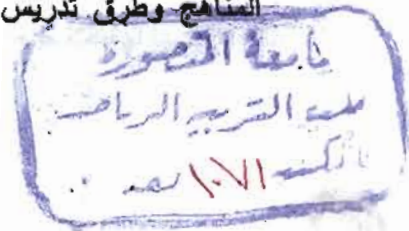 المناهج وطرق تدريس
جامعة المنصورة
كلية التربية الرياضية
١٠٧١